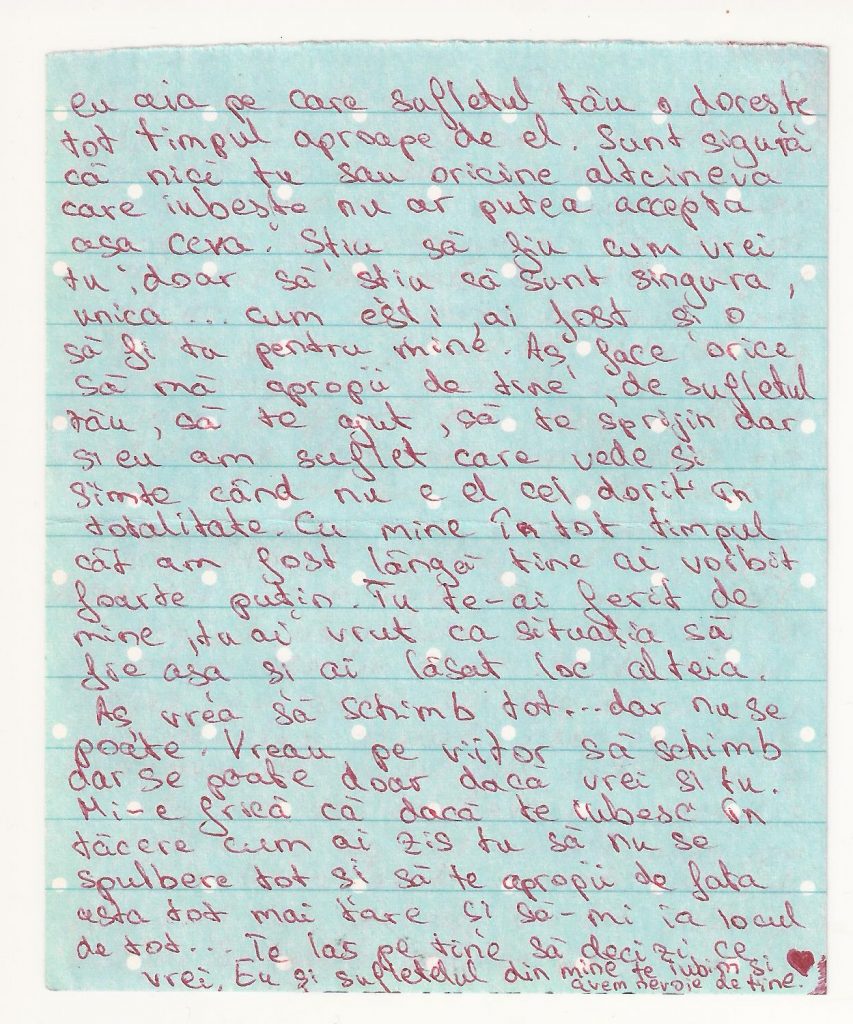 eu aia pe care sufletul tău o dorește
tot timpul aproape de el. Sunt sigură
că nici tu sau oricine altcineva
care iubește nu ar putea accepta
așa ceva. Știu să fiu cum vrei
tu, doar să știu că sunt singura,
unica... cum ești, ai fost și o
să fi tu pentru mine. Aș face orice
să mă apropii de tine, de sufletul
tău, să te ajut, să te sprijin dar
și eu am suflet care vede și
simte când nu e el cel dorit în
totalitate. Cu mine în tot timpul
cât am fost lângă tine ai vorbit
foarte puțin. Tu te-ai ferit de
mine, tu ai vrut ca situația să
fie așa și ai lăsat loc alteia.
Aș vrea să schimb tot...dar nu se
poate. Vreau pe viitor să schimb
dar se poate doar dacă vrei și tu.
Mi-e frică că dacă te iubesc în
tăcere cum ai zis tu să nu se
spulbere tot și să te apropii de fata
asta tot mai tare și să-mi ia locul
de tot... Te las pe tine să decizi ce
vrei. Eu și sufletelul din mine te iubim și
avem nevoie de tine.